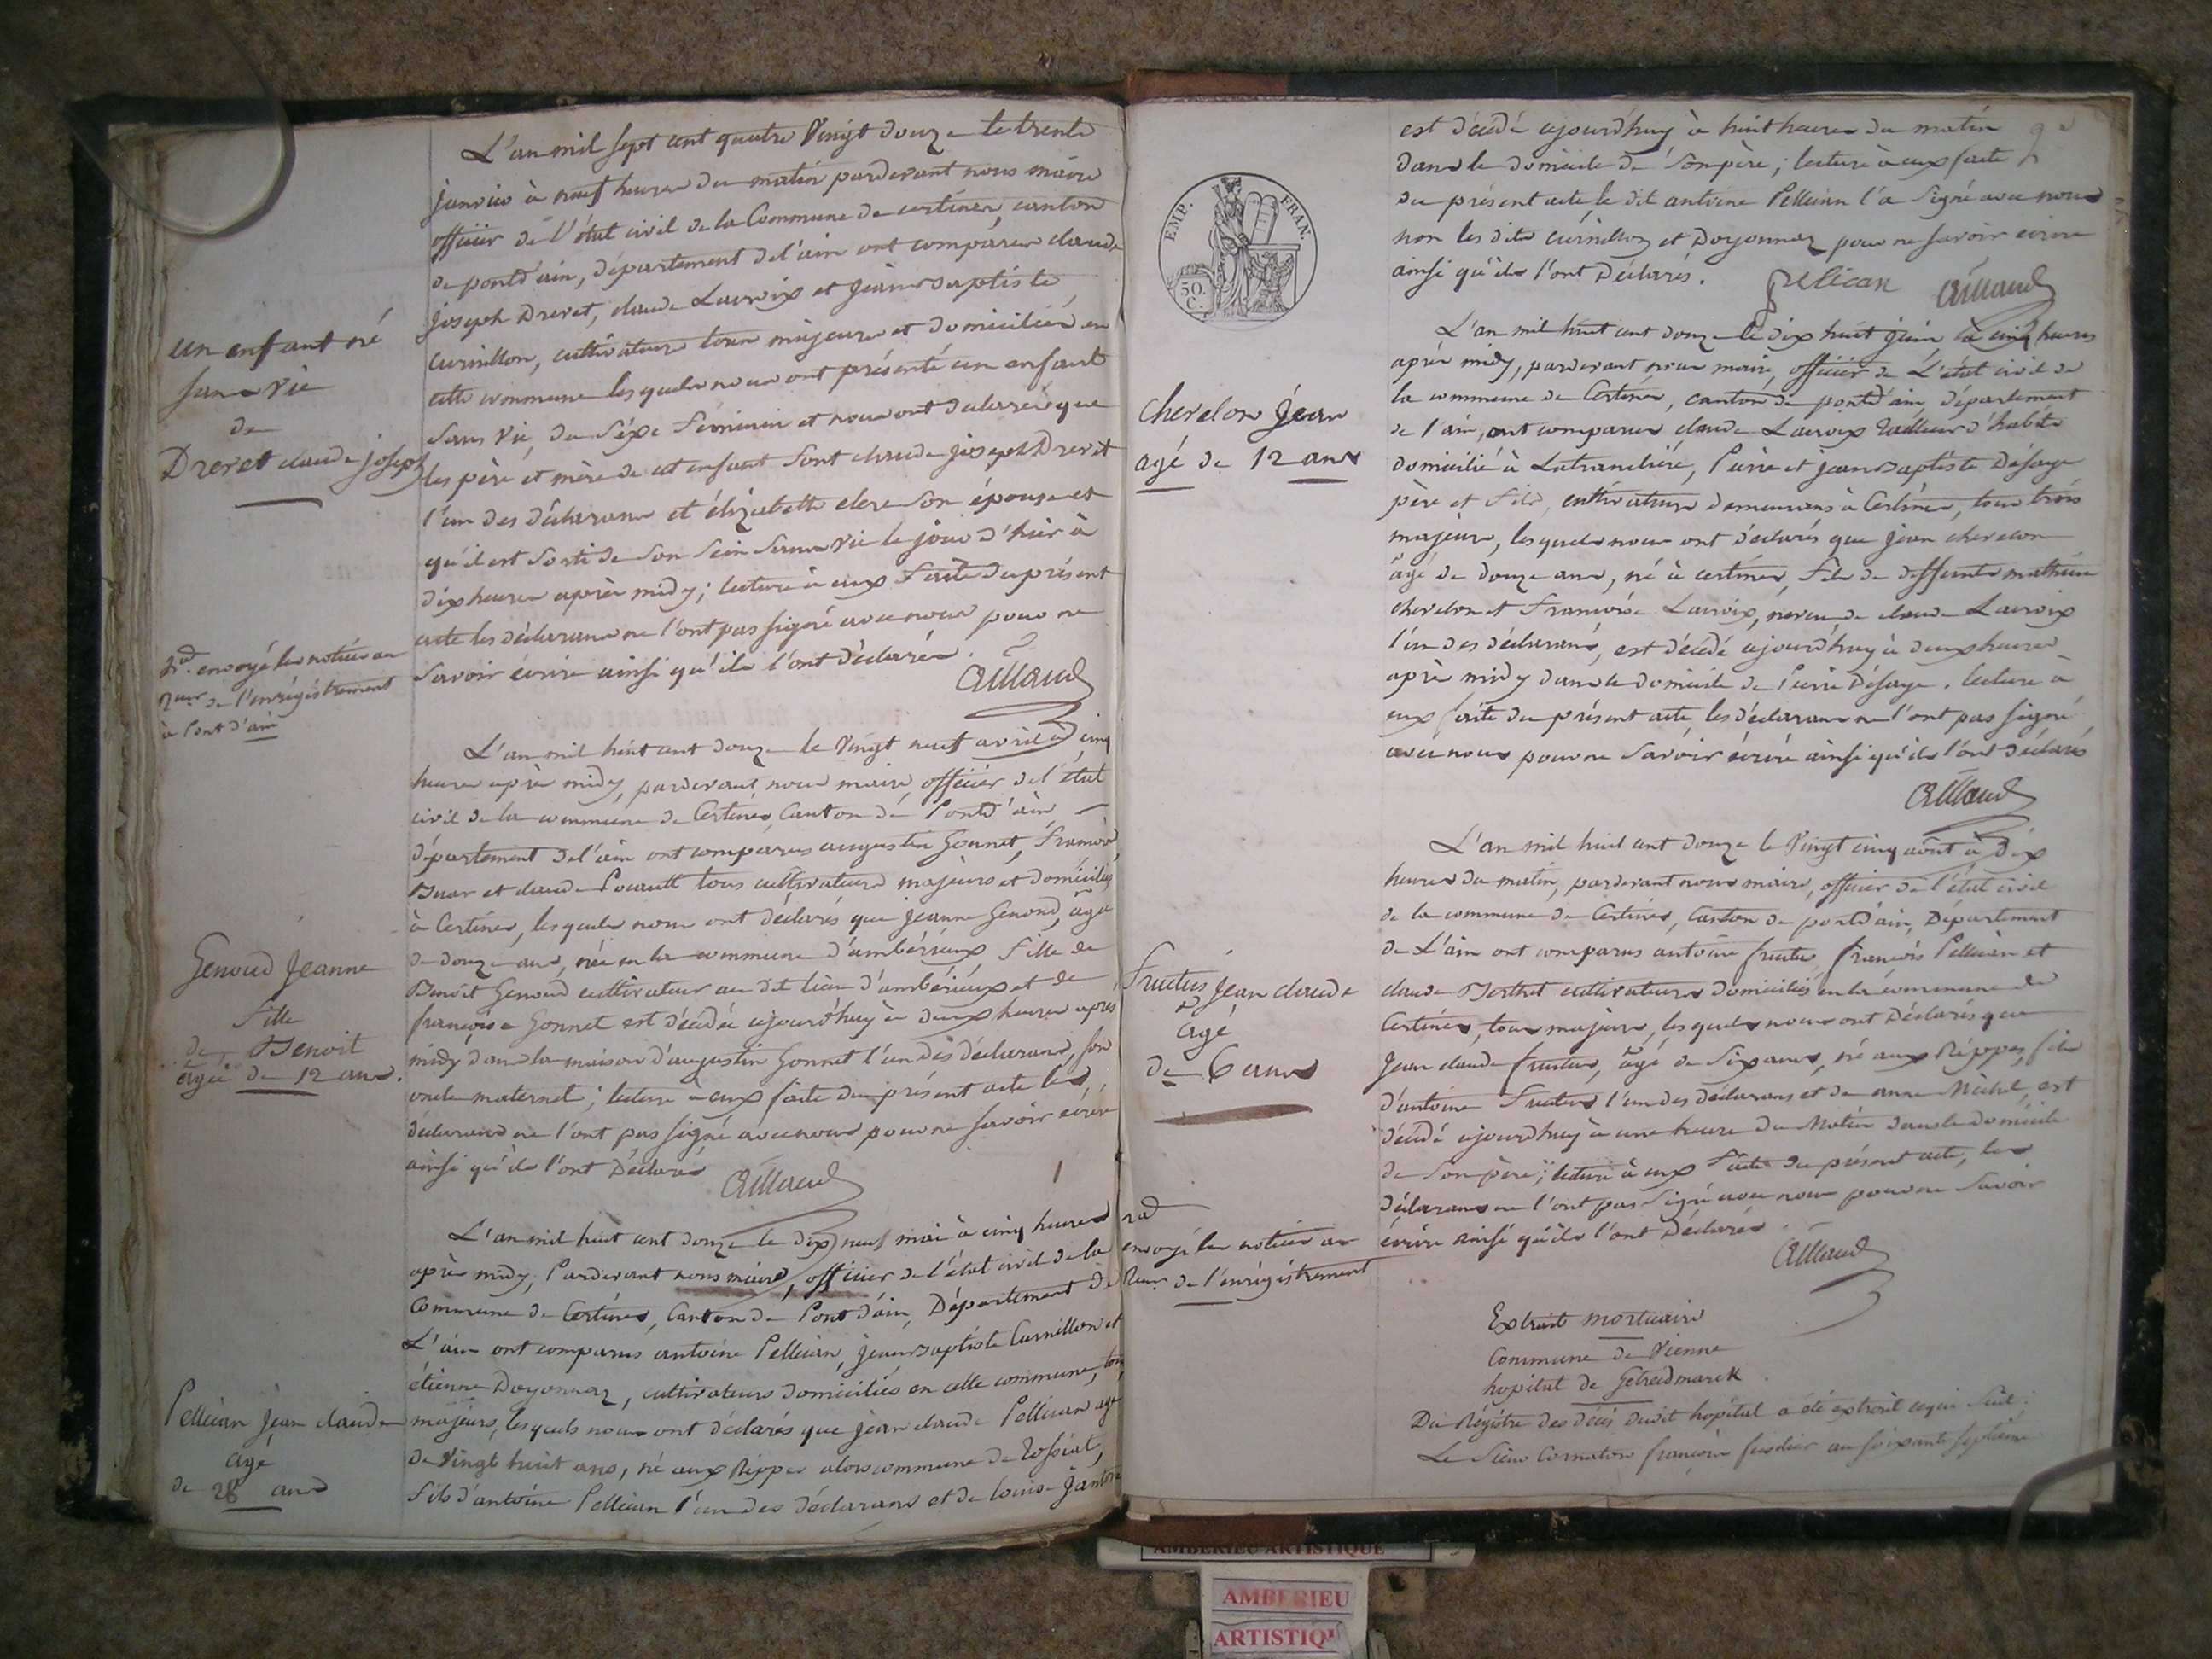 un enfant né
sans vie
de
Drevet claude joseph
L'an mil sept cent quatre Vingt douze le trente
janvier à neuf heures du matin pardevant nous maire
officier de l'état civil de la Commune de certines, canton
de pontd'ain, département de l'ain ont comparus claude
joseph Drevet, claude Lacroix et jean Baptiste
Curnillon, cultivateurs tous majeurs et domiciliés en
cette commune lesquels nous ont présenté un enfant
sans vie, du séxe féminin et nous ont déclarés que
les père et mère de cet enfant sont claude joseph Drevet
l'un des déclarans et élizabeth clere son épouse et
qu'il est sorti de son sein sans vie le jour d'hier à
dix heures après midy; lecture à eux faite du présent
acte les déclarans ne l'ont pas signé avec nous pour ne
savoir écrire ainsi qu'ils l'ont déclaré.
envoyé les notices au
de l'enrégistrement
à Pont d'ain
Genoud Jeanne
fille
de Benoit
agée de 12 ans.
L'an mil huit cent douze le Vingt neuf avril à cinq
heures après midy, pardevant nous maire, officier de l'état
civil de la commune de Certines, Canton de Pontd'ain,
département de l'ain ont comparus augustin Gonnet, François
Buar et claude tous cultivateurs majeurs et domiciliés
à Certines, lesquels nous ont déclarés que jeanne Genoud, âgé
de douze ans, née en la commune d'ambérieux fille de
Benoit Genoud cultivateur au dit lieu d'ambérieux et de
françoise Gonnet est décédée ajourd'huy à deux heures après
midy dans la maison d'augustin Gonnet l'un des déclarans, son
oncle maternel; lecture à eux faite du présent acte les
déclarans ne l'ont pas signé avec nous pour ne savoir écrire
ainsi qu'ils l'ont Déclarés
Pellican jean claude
agé
de 28 ans
L'an mil huit cent douze le dix neuf mai à cinq heures
après midy, Pardevant nous maire, officier de l'état civil de la
Commune de Certines, Canton de Pont d'ain, Département de
L'ain ont comparus antoine Pellican, jean Baptiste Curnillon et
étienne Doyonnaz, cultivateurs domiciliés en cette commune, tous
majeurs, lesquels nous ont déclarés que jean claude Pellican agé
de Vingt huit ans, né aux Rippes alors commune de Tossiat,
fils d'antoine Pellican l'un des déclarans et de louise
EMP. FRAN.
50.
C.
est décédé ajourd'huy à huit heures du matin
dans le domicile de son père; lecture à eux faite
du présent acte le dit antoine Pellican l'a signé avec nous
non les dits curnillon et Doyonnaz pour ne savoir écrire
ainsi qu'ils l'ont Déclarés.
pelican
Cherelon jean
agé de 12 ans
L'an mil huit cent douze le dix huit juin à cinq heures
après midy, pardevant nous maire, officier de L'état civil de
la commune de Certines, canton de pontd'ain, département
de l'ain, ont comparus claude Lacroix tailleur d'habits
domicilié à Latranclière, Pierre et jean Baptiste Désaye
père et fils, cultivateurs demeurans à Certines, tous trois
majeurs, lesquels nous ont déclarés que jean cherelon
âgé de douze ans, né à certines, fils de deffunts mathieu
cherelon et Françoise Lacroix, neveu de claude Lacroix
l'un des déclarans, est décédé ajourd'huy à deux heures
après midy dans le domicile de Pierre Désaye. lecture à
eux faite du présent acte, les déclarans ne l'ont pas signé
avec nous pour ne savoir écrire ainsi qu'ils l'ont déclarés
Fructus jean claude
agé
de 6 ans
L'an mil huit cent douze le Vingt cinq août à dix
heures du matin, pardevant nous maire, officier de l'état civil
de la commune de Certines, Canton de pontd'ain, Département
de L'ain ont comparus antoine fructus françois Pellican et
claude Berthet cultivateurs domiciliés en la commune de
Certines, tous majeurs, lesquels nous ont Déclarés que
Jean claude fructus, âgé de six ans, né aux Rippes, fils
d'antoine Fructus l'un des déclarans et de anne Michel, est
décédé ajourd'huy à une heure du Matin dans le domicile
de son père; lecture à eux faite du présent acte, les
déclarans ne l'ont pas signé avec nous pour ne savoir
écrire ainsi qu'ils l'ont Déclarés
envoyé les notices au
de l'enrégistrement
Extrait mortuaire
Commune de Vienne
hopital de Getreidmarck
Du Régistre des décès dudit hopital a été extrait cequi suit.
Le Sieur Cornaton françois fusilier au soixante septième
AMBERIEU ARTISTIQUE
AMBERIEU
ARTISTIQ